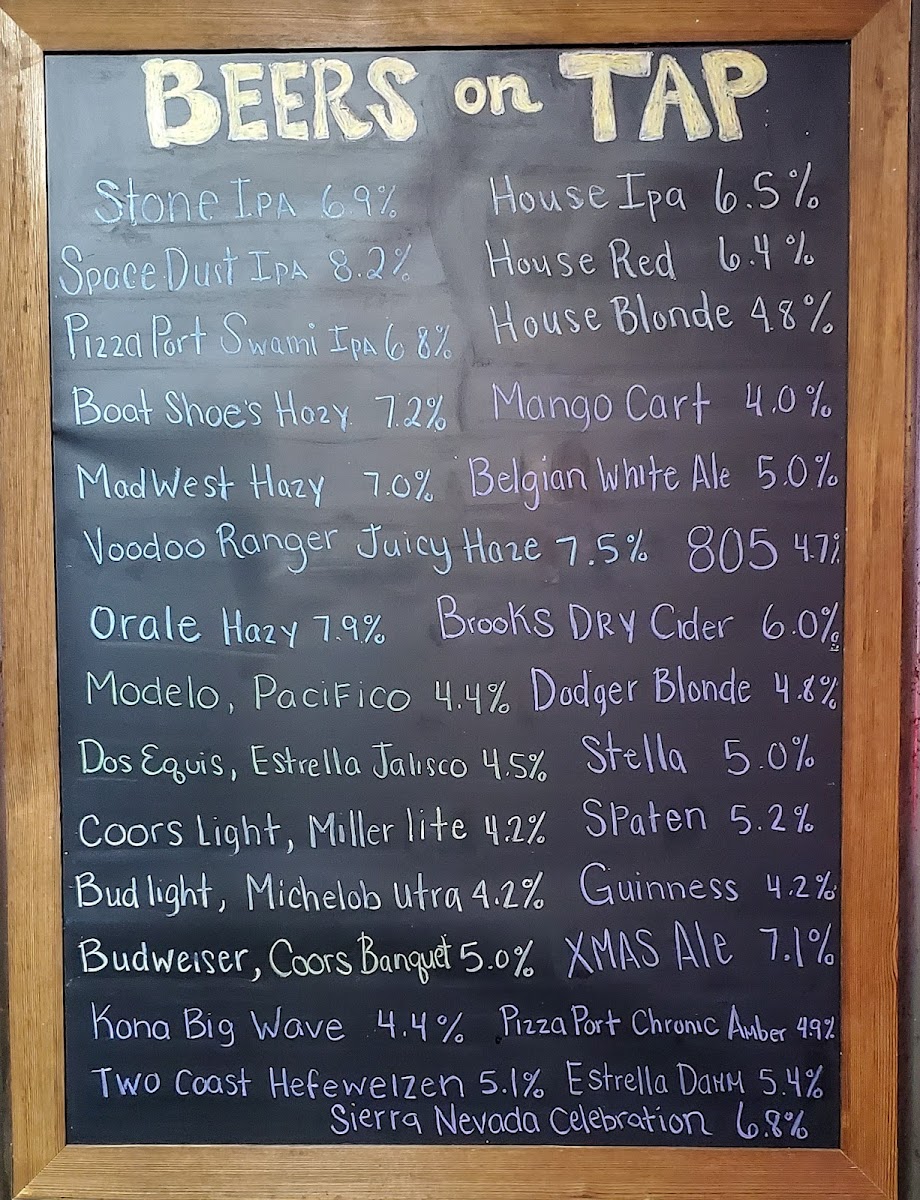 BEERS on TAP
Stone IPA 6.9% House Ipa 6.5%
Space Dust IPA 8.2% House Red 6.4%
Pizza Port Swami IPA 6.8% House Blonde 4.8%
Boat Shoe's Hazy 7.2% Mango Cart 4.0%
MadWest Hazy 7.0% Belgian White Ale 5.0%
Voodoo Ranger Juicy Haze 7.5% 805 4.7%
Orale Hazy 7.9% Brooks DRY Cider 6.0%
Modelo, Pacifico 4.4% Dodger Blonde 4.8%
Dos Equis, Estrella Jalisco 4.5% Stella 5.0%
Coors Light, Miller lite 4.2% Spaten 5.2%
Bud light, Michelob Utra 4.2% Guinness 4.2%
Budweiser, Coors Banquet 5.0% XMAS Ale 7.1%
Kona Big Wave 4.4% Pizza Port Chronic Amber 4.9%
Two Coast Hefeweizen 5.1% Estrella Damm 5.4%
Sierra Nevada Celebration 6.8%